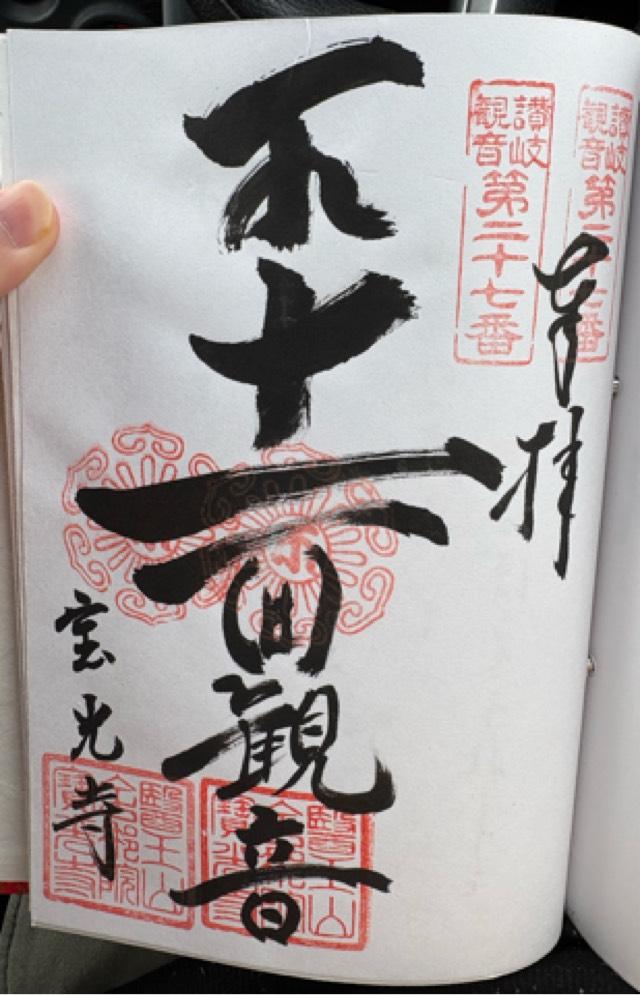 讃岐
観音
第二十七番
讃岐
観音
第二十七番
奉拝
十一面観音
宝光寺
醫王山
寶光寺
醫王山
寶光寺